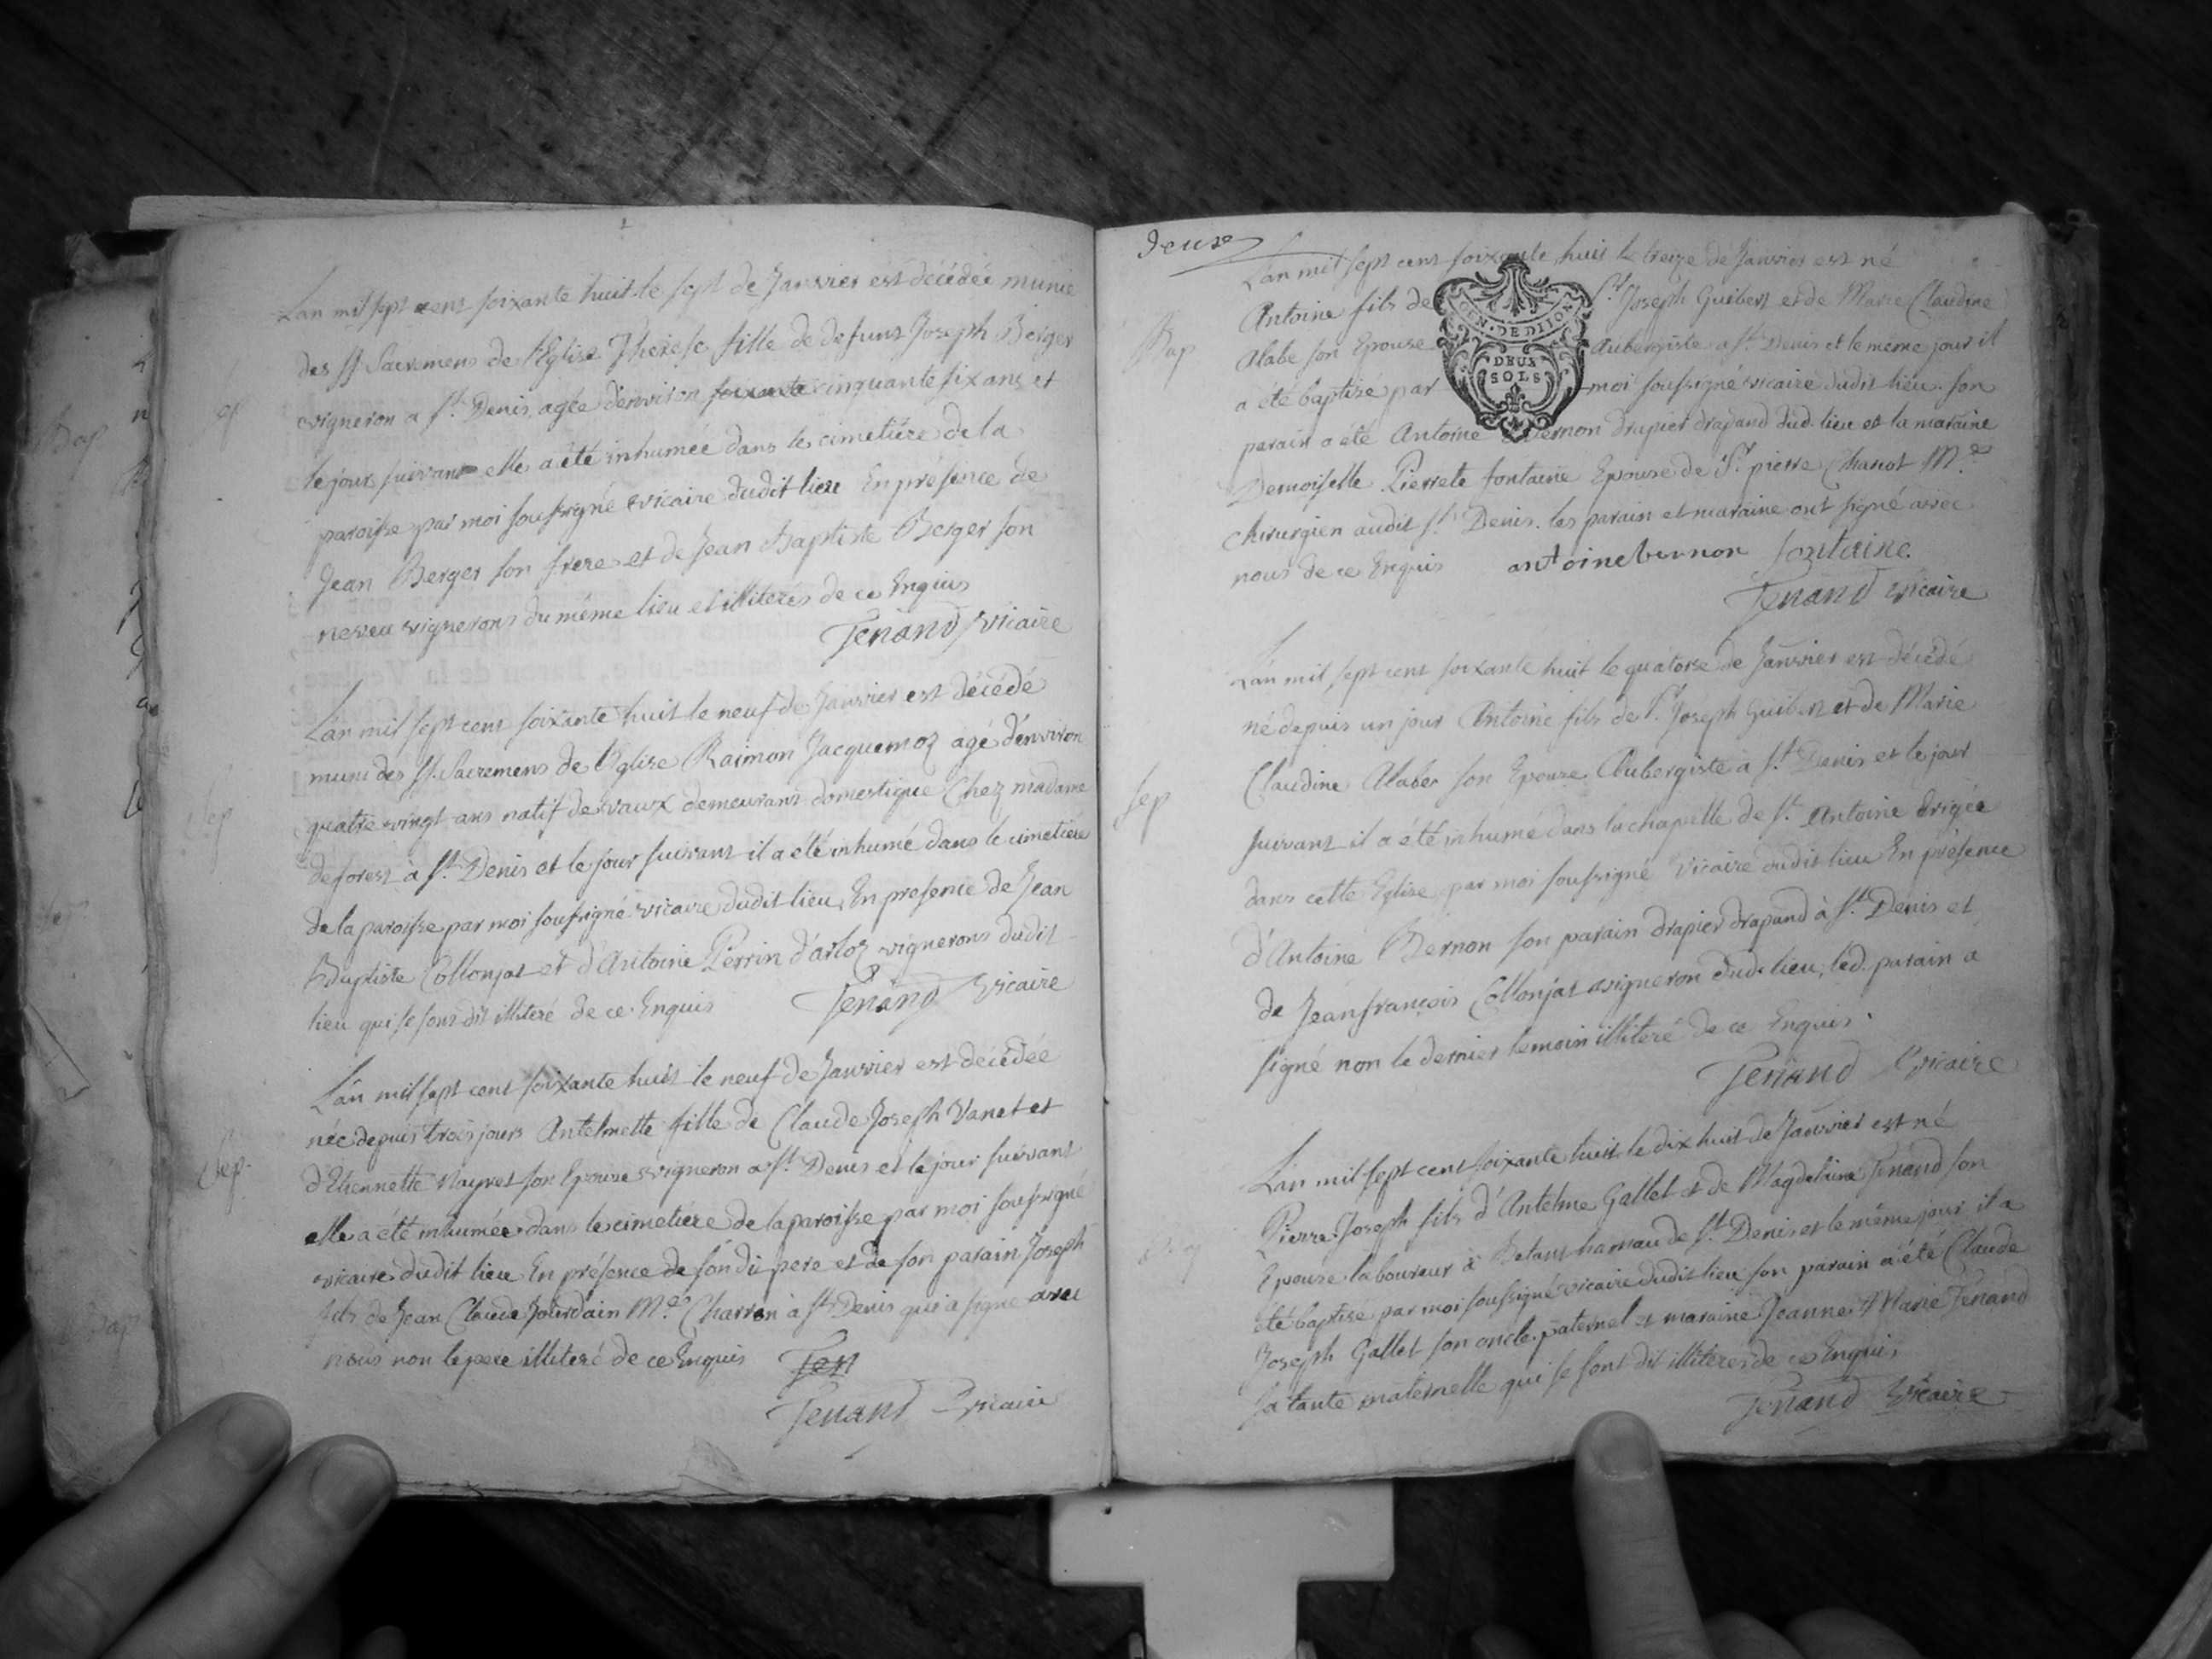 L'an mil sept cent soixante huit le sept de Janvier est décédée munie
des SS. Sacremens de l'Eglise Therese fille de defunt Joseph Berger
vigneron a St. Denis, agée d'environ soixante cinquante six ans et
le jour suivant elle a été inhumée dans le cimetière de la
paroisse par moi soussigné vicaire dudit lieu En présence de
Jean Berger son frere et de Jean Baptiste Berger son
neveu vignerons du même lieu et illiterés de ce Enquis
Tenand vicaire
L'an mil sept cent soixante huit le neuf de Janvier est décédé
muni des SS. Sacremens de l'Eglise Raimon Jacquemoz agé d'environ
quatre vingt ans natif de vaux demeurant domestique Chez madame
deforest à St. Denis et le jour suivant il a été inhumé dans le cimetière
de la paroisse par moi soussigné vicaire dudit lieu, En presence de Jean
Baptiste Collonjat et d'Antoine Perrin d'arloz vignerons dudit
lieu qui se sont dit illiteré de ce Enquis Tenand vicaire
Sep.
L'an mil sept cent soixante huit le neuf de Janvier est décédée
née depuis trois jours Antelmette fille de Claude Joseph Vanet et
d'Etiennette Mayret son Epouse vigneron a St. Denis et le jour suivant
elle a été inhumée dans le cimetière de la paroisse par moi soussigné
vicaire dudit lieu En présence de son dit pere et de son parain Joseph
fils de Jean Claude Jourdain Me. Charron à St. Denis qui a signé avec
nous non le pere illiteré de ce Enquis Ten
Tenand vicaire
deux
L'an mil sept cent soixante huit le treize de Janvier est né
Bap
Antoine fils de Sr. Joseph Guibert et de Marie Claudine
GEN. DE DIJON
DEUX
SOLS
Alabe son Epouse Aubergiste a St. Denis et le meme jour il
a été baptisé par moi soussigné vicaire dudit lieu son
parain a été Antoine Bernon drapier drapand dud. lieu et la maraine
Demoiselle Pierrete fontaine Epouse de Sr. pierre Chanot Me.
chirurgien audit St. Denis. les parain et maraine ont signé avec
nous de ce Enquis antoine bernon fontaine
Tenand vicaire
L'an mil sept cent soixante huit le quatorse de Janvier est décédé
né depuis un jour Antoine fils de Sr. Joseph Guibert et de Marie
Sep
Claudine Alabe son Epouse Aubergiste à St. Denis et le jour
suivant il a été inhumé dans la chapelle de St. Antoine Erigée
dans cette Eglise par moi soussigné Vicaire dudit lieu En présence
d'Antoine Bernon son parain drapier drapand à St. Denis et
de Jean françois Collonjat vigneron dud. lieu, led. parain a
signé non le dernier temoin illiteré de ce Enquis.
Tenand vicaire
L'an mil sept cent soixante huit le dix huit de Janvier est né
Pierre Joseph fils d'Antelme Gallet et de Magdelaine Tenand son
Epouse laboureur à Betant hamau de St. Denis et le même jour il a
été baptisé par moi soussigné vicaire dudit lieu son parain a été Claude
Joseph Gallet son oncle paternel et maraine Jeanne Marie Tenand
sa tante maternelle qui se sont dit illiteres de ce Enquis
Tenand vicaire